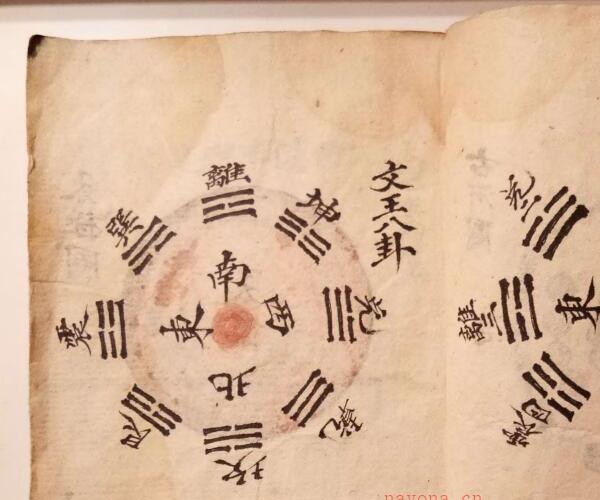 文王八卦
離
坤
兌
乾
坎
艮
震
巽
南
西
北
東
兌
離
震
東
nayona.cn